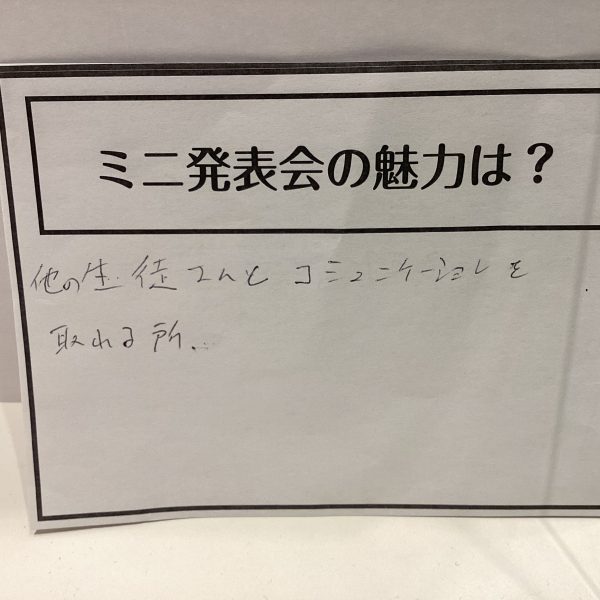 ミニ発表会の魅力は？
他の生徒さんと コミュニケーションを
取れる所。